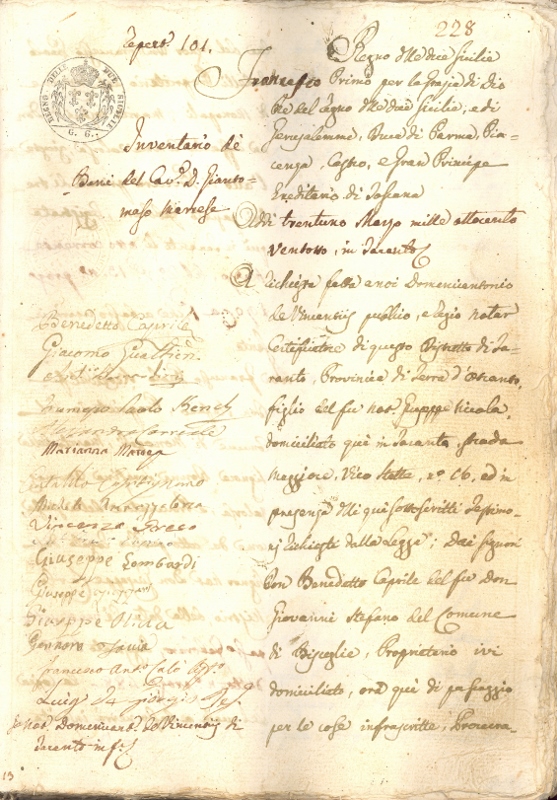 228
Repert.° 101.
REGNO DELLE DUE SICILIE
G. 6.
Inventario de
Beni del Cav.e D. Gianto-
maso Marrese
Regno delle due Sicilie
Francesco Primo per la grazia di Dio
Re del Regno delle due Sicilie, e di
Gerusalemme, Duca di Parma, Pia-
cenza, Castro, e Gran Principe
Ereditario di Toscana
Addi trentuno Marzo mille ottocento
Ventotto, in Taranto
A richiesta fatta a noi Domenicantonio
de Vincentiis publico, e regio notar
Certificatore di questo Distretto di Ta-
ranto, Provincia di Terra d'Otranto,
figlio del fu not.r Giuseppe Nicola,
domiciliato quì in Taranto, strada
maggiore, Vico Stette, n.° 66, ed in
presenza delli qui sottoscritti Testimo-
nj richiesti dalla Legge; Dai Signori
Don Benedetto Caprile del fu Don
Giovanni Stefano del Comune
di Bisceglie, Proprietario ivi
domiciliato, ora quì di passaggio
per le cose infrascritte, Procura-
Benedetto Caprile
Giacomo Gualtieri
Francesco Paolo
Alessandro
Marianna Marrese
Michele
Vincenzo Greco
Giuseppe Lombardi
Giuseppe
Giuseppe
Gennaro
Francesco Ant.° Calò
Luigi de Giorgio
Io not.r Domenicant.° de Vincentiis di
Taranto
13